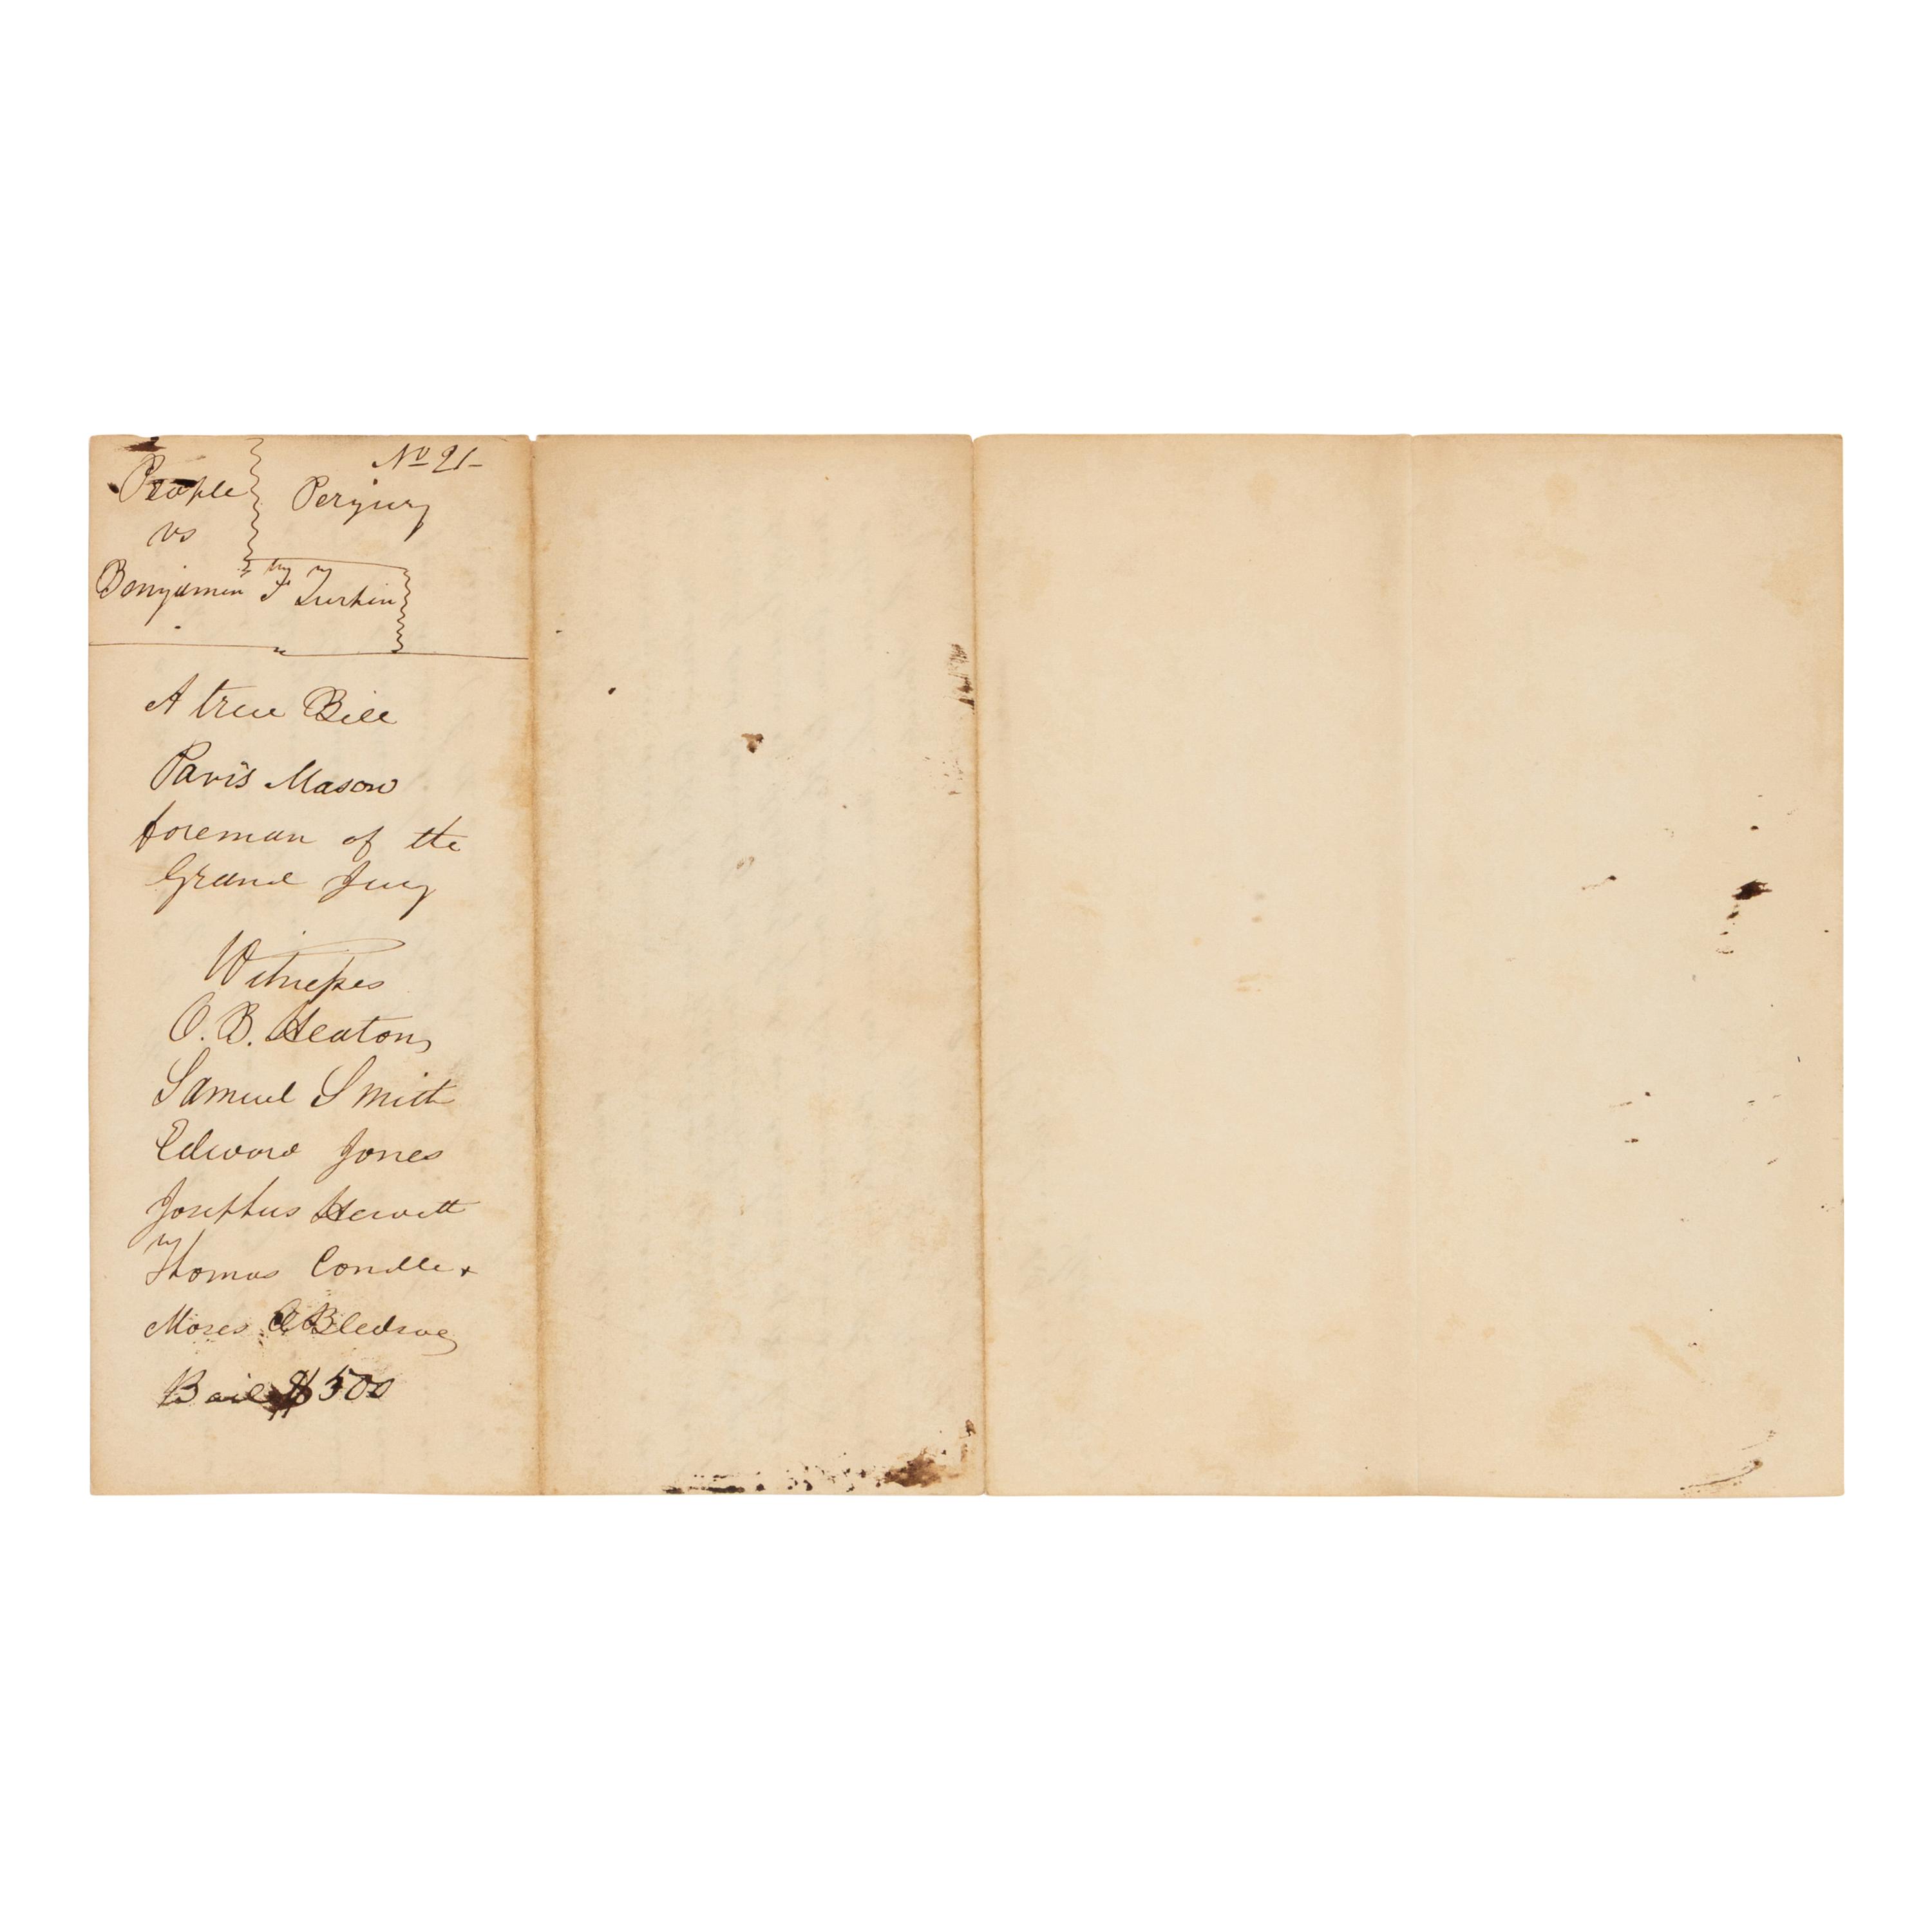 No 21
People
vs
Perjury
Benjamin F Turkin
A true Bill
Paris Mason
foreman of the
Grand Jury
Witnesses
O. B. Heaton
Samuel Smith
Edward Jones
Josephus Hewett
Thomas Condle
Moses O Bledsoe
Bail $500